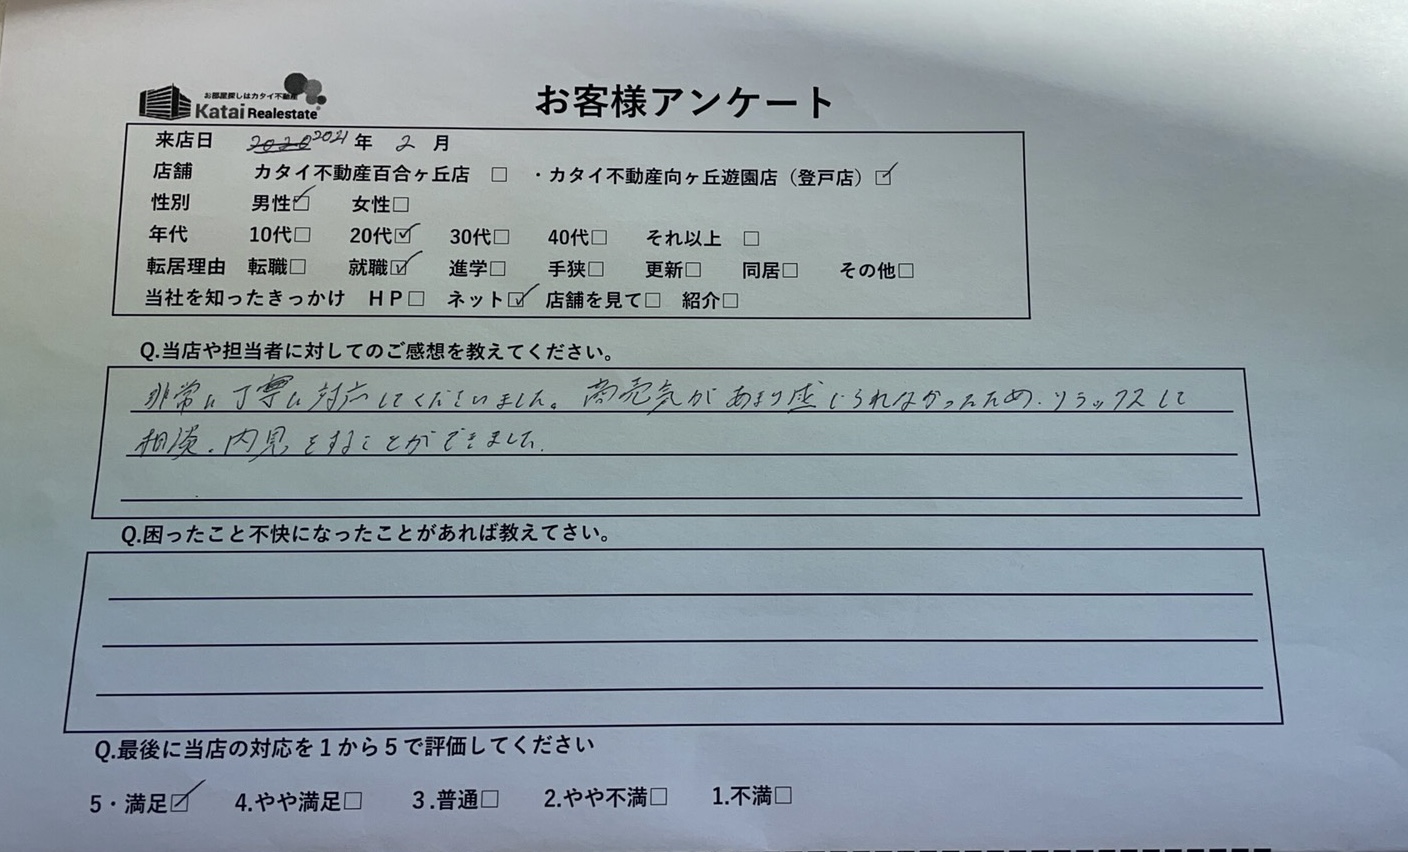 お部屋探しはカタイ不動産
Katai Realestate
お客様アンケート
来店日 2020 2021 年 2 月
店舗 カタイ不動産百合ヶ丘店 □ ・カタイ不動産向ヶ丘遊園店（登戸店）☑
性別 男性☑ 女性□
年代 10代□ 20代☑ 30代□ 40代□ それ以上 □
転居理由 転職□ 就職☑ 進学□ 手狭□ 更新□ 同居□ その他□
当社を知ったきっかけ ＨＰ□ ネット☑ 店舗を見て□ 紹介□
Q.当店や担当者に対してのご感想を教えてください。
非常に丁寧に対応してくださいました。商売気があまり感じられなかったため、リラックスして
相談・内見をすることができました。
Q.困ったこと不快になったことがあれば教えてさい。
Q.最後に当店の対応を１から５で評価してください
5・満足☑ 4.やや満足□ ３.普通□ 2.やや不満□ 1.不満□